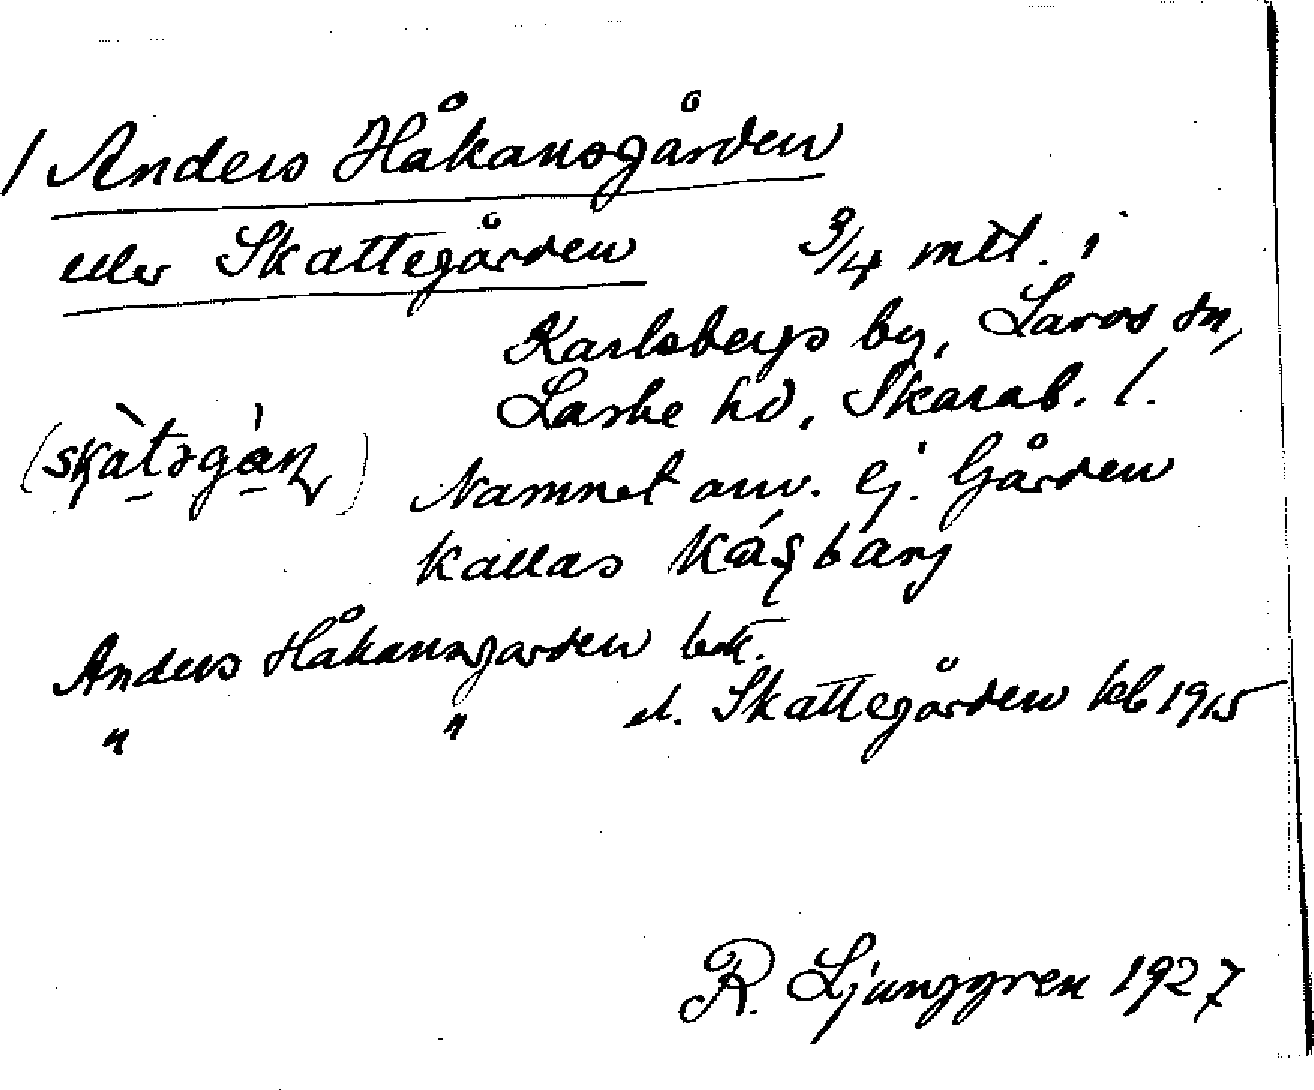 / Anders Håkansgården
eller Skattegården 3/4 mtl. i
Karlsbergs by, Larvs sn,
Laske hd, Skarab. l.
(skàtəgàɳ) Namnet anv. ej. Gården
kallas Káʂbærj
Anders Håkansgården bek.
" " el. Skattegården kb 1915
R. Ljunggren 1927